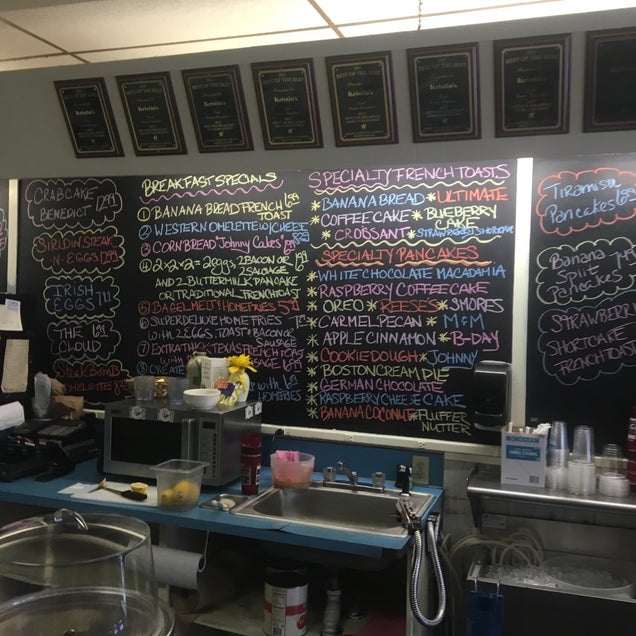 BEST OF THE BEST
Kristin's
BEST OF THE BEST
Kristin's
BEST OF THE BEST
Kristin's
BEST OF THE BEST
Kristin's
BEST OF THE BEST
Kristin's
BEST OF THE BEST
Kristin's
CRABCAKE
BENEDICT 12.99
SIRLOIN STEAK
N-EGGS 12.99
IRISH
EGGS
THE
CLOUD
STEAK BOMB
OMELETTE
BREAKFAST SPECIALS
① BANANA BREAD FRENCH
TOAST
② WESTERN OMELETTE W/CHEESE
③ CORNBREAD "Johnny Cakes"
④ 2x2x2 = 2 EGGS, 2 BACON OR
2 SAUSAGE
AND 2 BUTTERMILK PANCAKE
OR TRADITIONAL FRENCH TOAST
⑤ BAGEL MELT & HOMEFRIES
⑥ SUPER DELUXE HOME FRIES
WITH 2 EGGS, TOAST & BACON OR
SAUSAGE
⑦ EXTRA THICK TEXAS FRENCH TOAST
⑧ CREATE
SPECIALTY FRENCH TOASTS
*BANANA BREAD *ULTIMATE
*COFFEE CAKE *BLUEBERRY
CAKE
*CROSSANT *STRAWBERRY SHORTCAKE
SPECIALTY PANCAKES
*WHITE CHOCOLATE MACADAMIA
*RASPBERRY COFFEECAKE
*OREO *REESE'S *SMORES
*CARMEL PECAN *M&M
*APPLE CINNAMON *B-DAY
*COOKIE DOUGH *JOHNNY
*BOSTON CREAM PIE
*GERMAN CHOCOLATE
*RASPBERRY CHEESE CAKE
*BANANA COCONUT *FLUFFER
NUTTER
TIRAMISU
PANCAKES
BANANA
SPLIT
PANCAKES
STRAWBERRY
SHORTCAKE
FRENCH TOAST
MONOGRAM